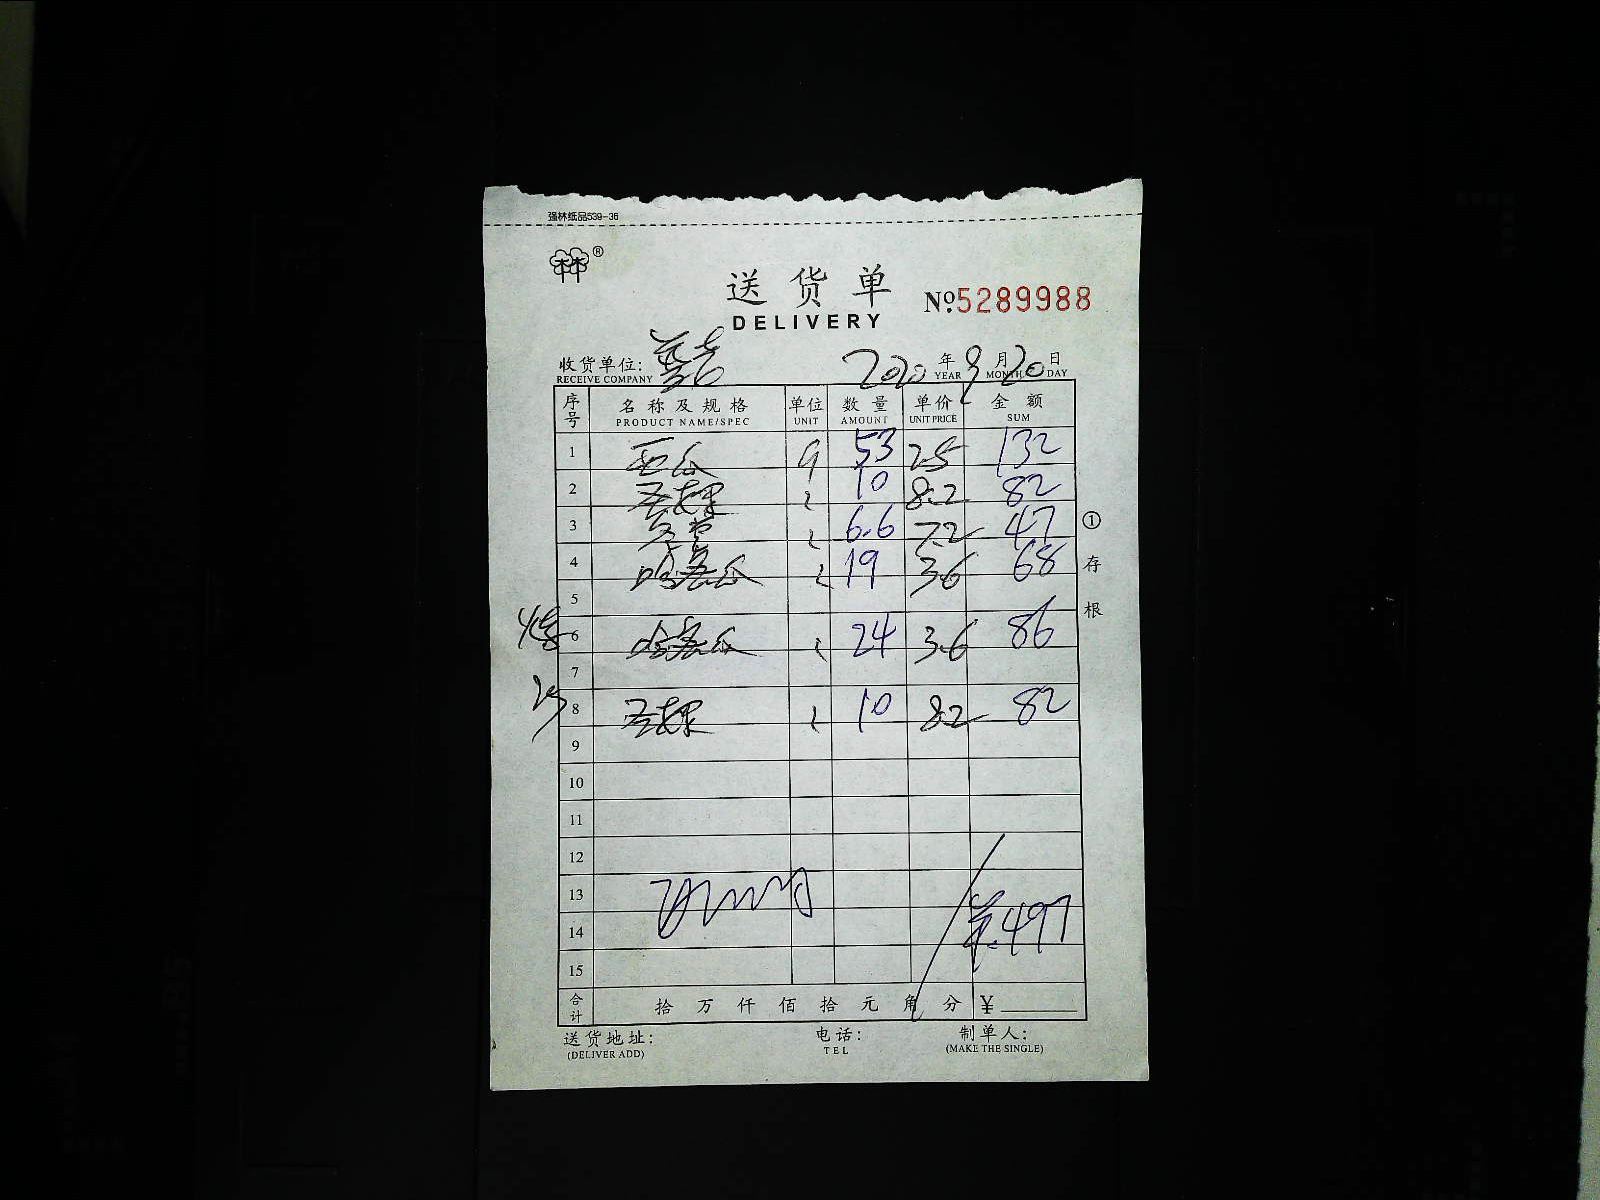 强林纸品539-36
林®
送货单 №5289988
DELIVERY
收货单位: 2020年9月20日
RECEIVE COMPANY YEAR MONTH DAY
序号 名称及规格 单位 数量 单价 金额
PRODUCT NAME/SPEC UNIT AMOUNT UNIT PRICE SUM
1 西瓜 53 2.5 132
2 10 8.2 82
3 6.6 7.2 47
4 哈密瓜 19 3.6 68
5
6 哈密瓜 24 3.6 86
7
8 10 8.2 82
9
10
11
12
13
14 497
15
合计 拾 万 仟 佰 拾 元 角 分 ¥
①存根
送货地址: 电话: 制单人:
(DELIVER ADD) TEL (MAKE THE SINGLE)